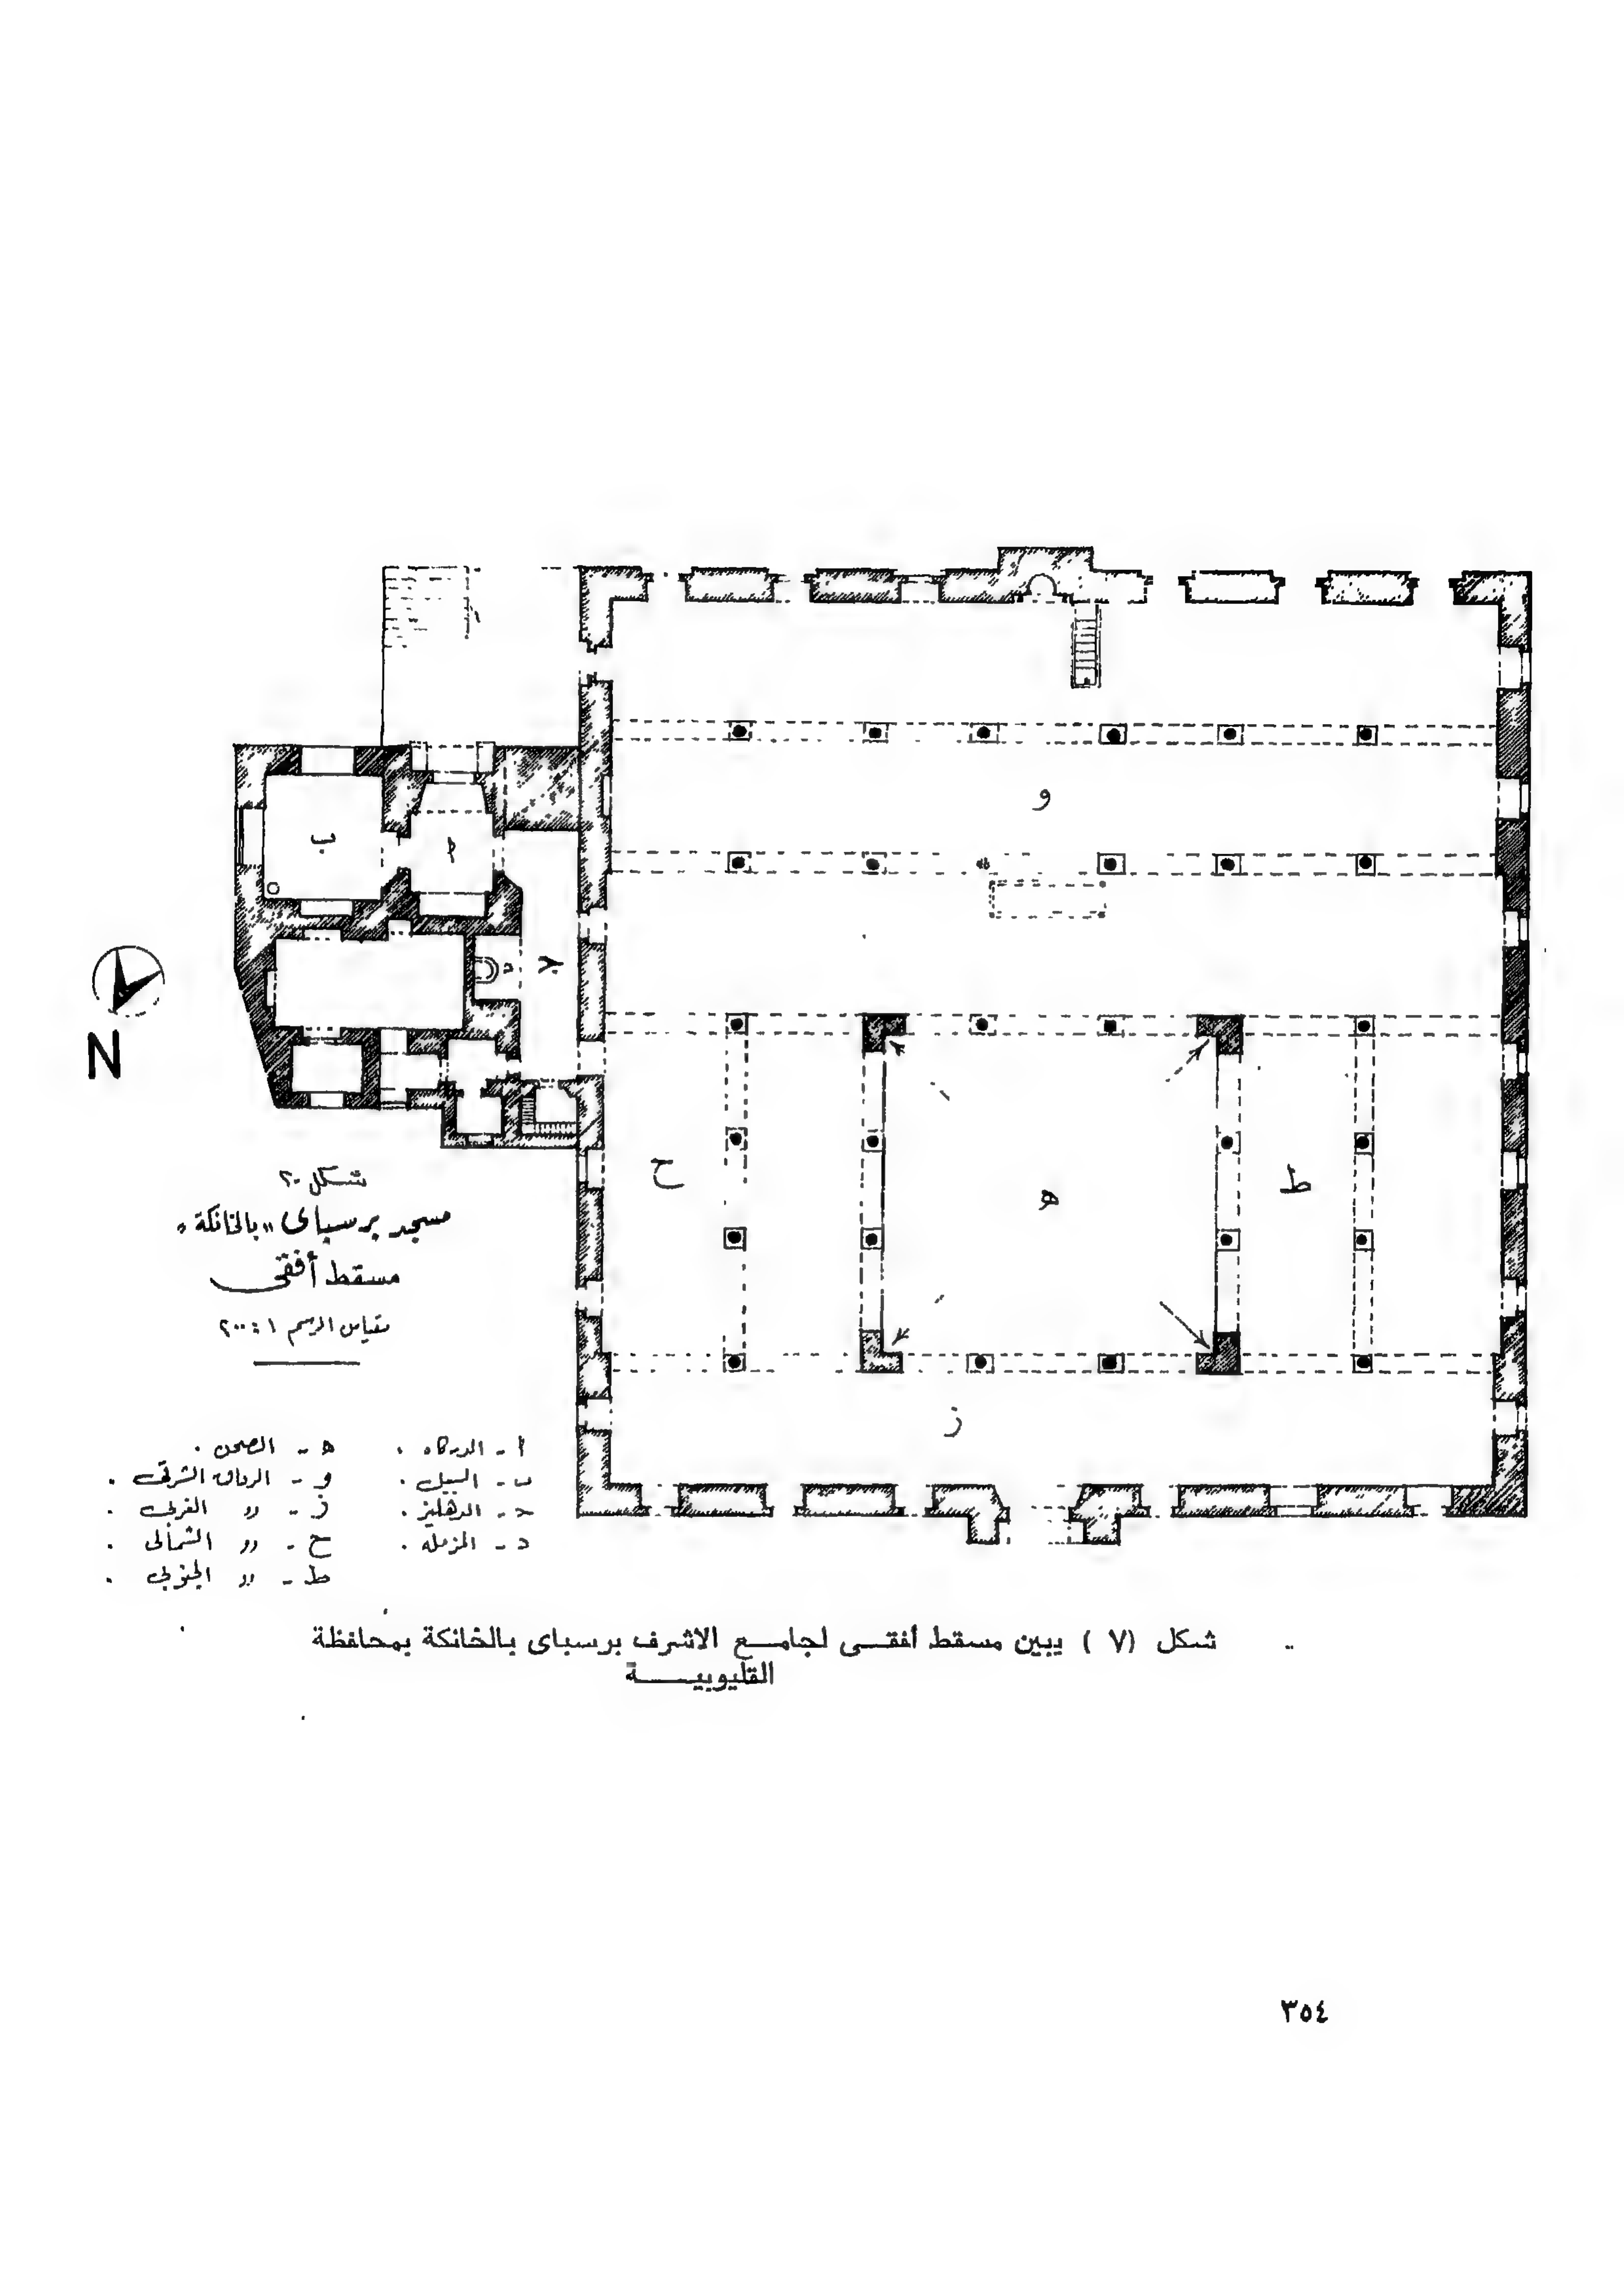 و
ب
ا
د
ج
N
ح
ه
ط
ز
شكل ٢٠
مسجد برسباى "بالخانكة"
مسقط أفقى
مقياس الرسم ١ : ٢٠٠
ا - الدركاه .
ب - السبيل .
ج - الدهليز .
د - المزمله .
ه - الصحن .
و - الرواق الشرقى .
ز - " الغربى .
ح - " الشمالى .
ط - " الجنوبى .
شكل (٧ ) يبين مسقط أفقى لجامع الاشرف برسباى بالخانكة بمحافظة
القليوبية
٣٥٤